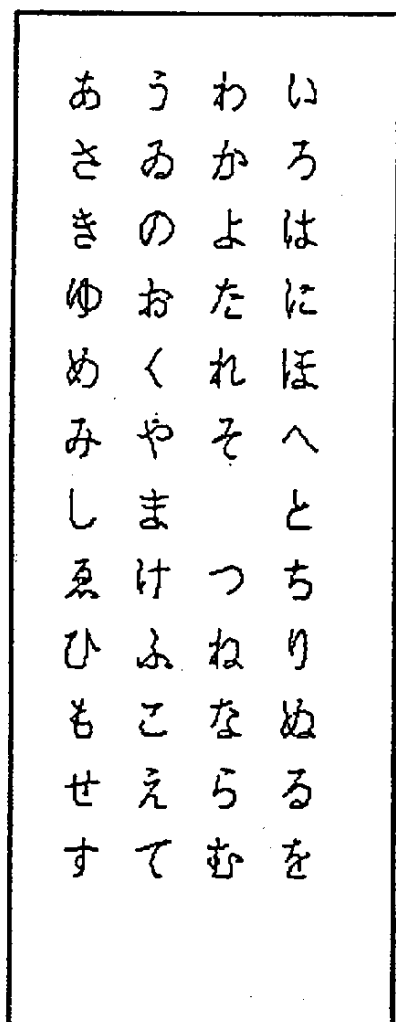 いろはにほへとちりぬるを
わかよたれそ　つねならむ
うゐのおくやまけふこえて
あさきゆめみしゑひもせす